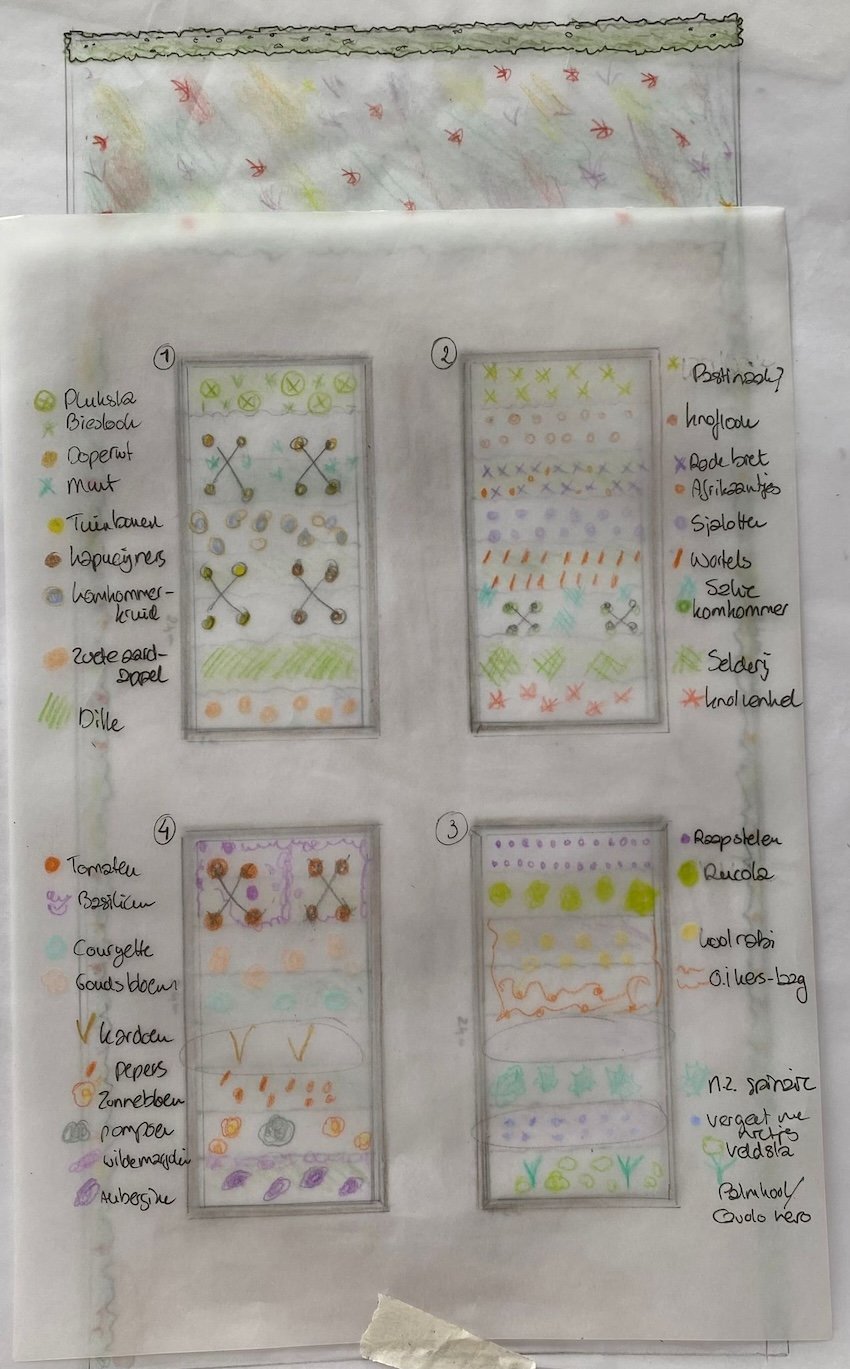 1
Pluksla
Bieslook
Doperwt
Munt
Tuinbonen
kapucijners
komkommer-
kruid
Zoete aard-
appel
Dille
2
Pastinaak?
knoflook
Rode biet
Afrikaantjes
Sjalotten
Wortels
Salie
komkommer
Selderij
knolvenkel
4
Tomaten
Basilicum
Courgette
Goudsbloem
Kardoen
pepers
Zonnebloem
pompoen
Aubergine
3
Raapstelen
Rucola
koolrabi
O.i kers-
n.z. spinazie
vergeet me
nietjes
Veldsla
Palmkool/
nero